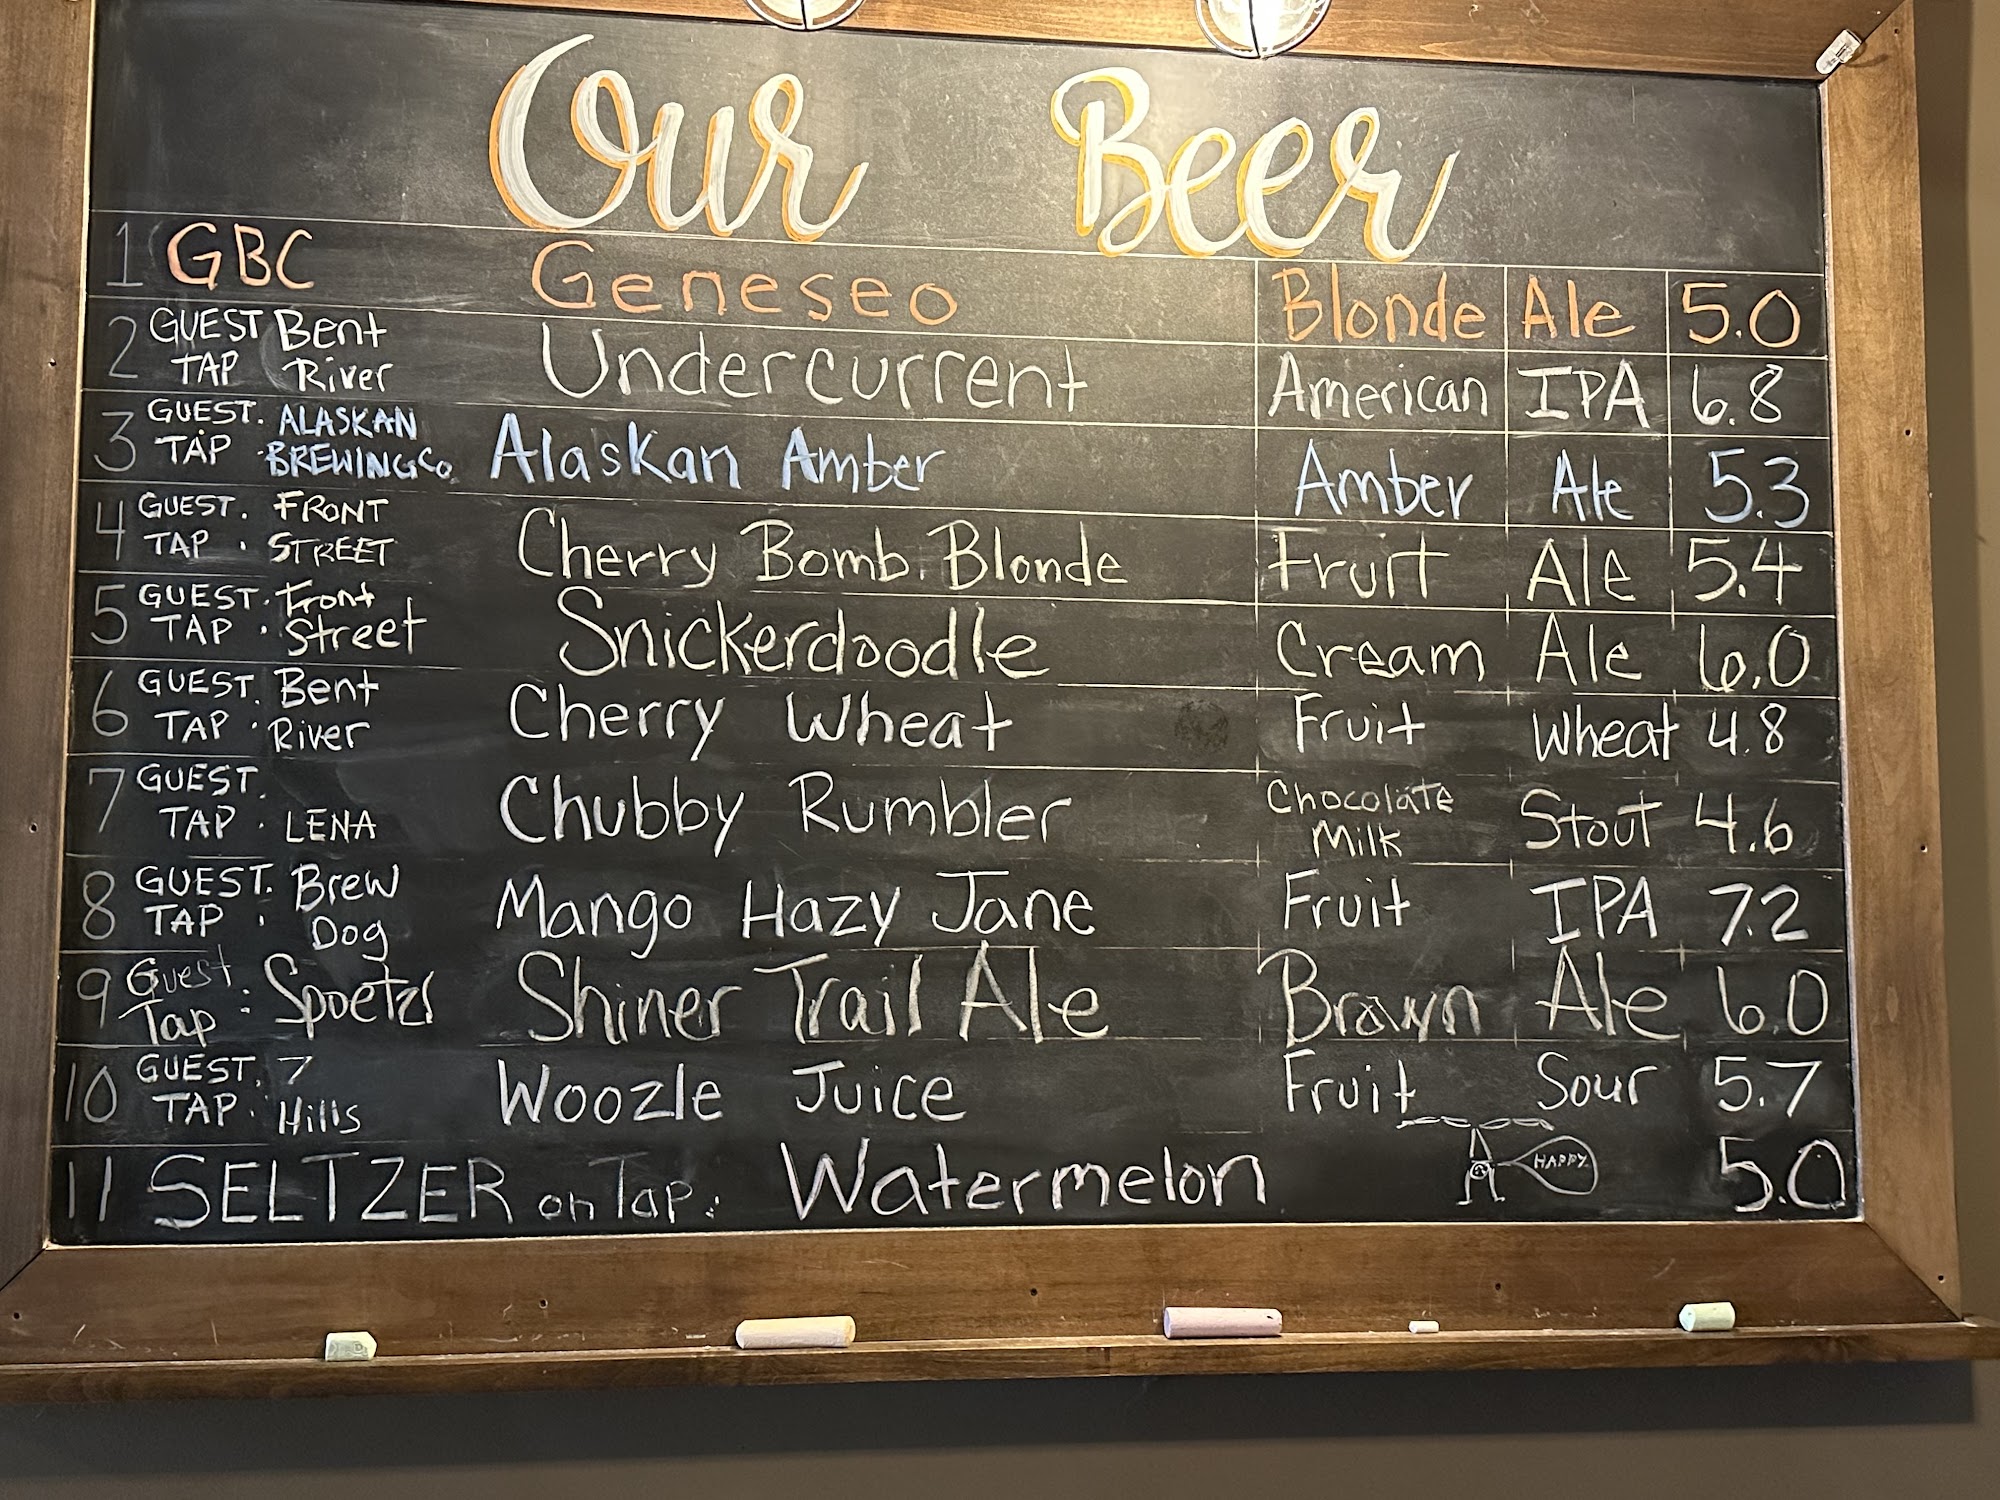 Our Beer
1 GBC Geneseo Blonde Ale 5.0
2 GUEST TAP Bent River Undercurrent American IPA 6.8
3 GUEST. TAP ALASKAN BREWING Co. Alaskan Amber Amber Ale 5.3
4 GUEST. TAP. FRONT STREET Cherry Bomb. Blonde Fruit Ale 5.4
5 GUEST. TAP. Front Street Snickerdoodle Cream Ale 6.0
6 GUEST. TAP. Bent River Cherry Wheat Fruit Wheat 4.8
7 GUEST. TAP. LENA Chubby Rumbler Chocolate Milk Stout 4.6
8 GUEST. TAP. Brew Dog Mango Hazy Jane Fruit IPA 7.2
9 Guest. Tap. Spoetzl Shiner Trail Ale Brown Ale 6.0
10 GUEST. TAP. 7 Hills Woozle Juice Fruit Sour 5.7
11 SELTZER on Tap: Watermelon HAPPY 5.0